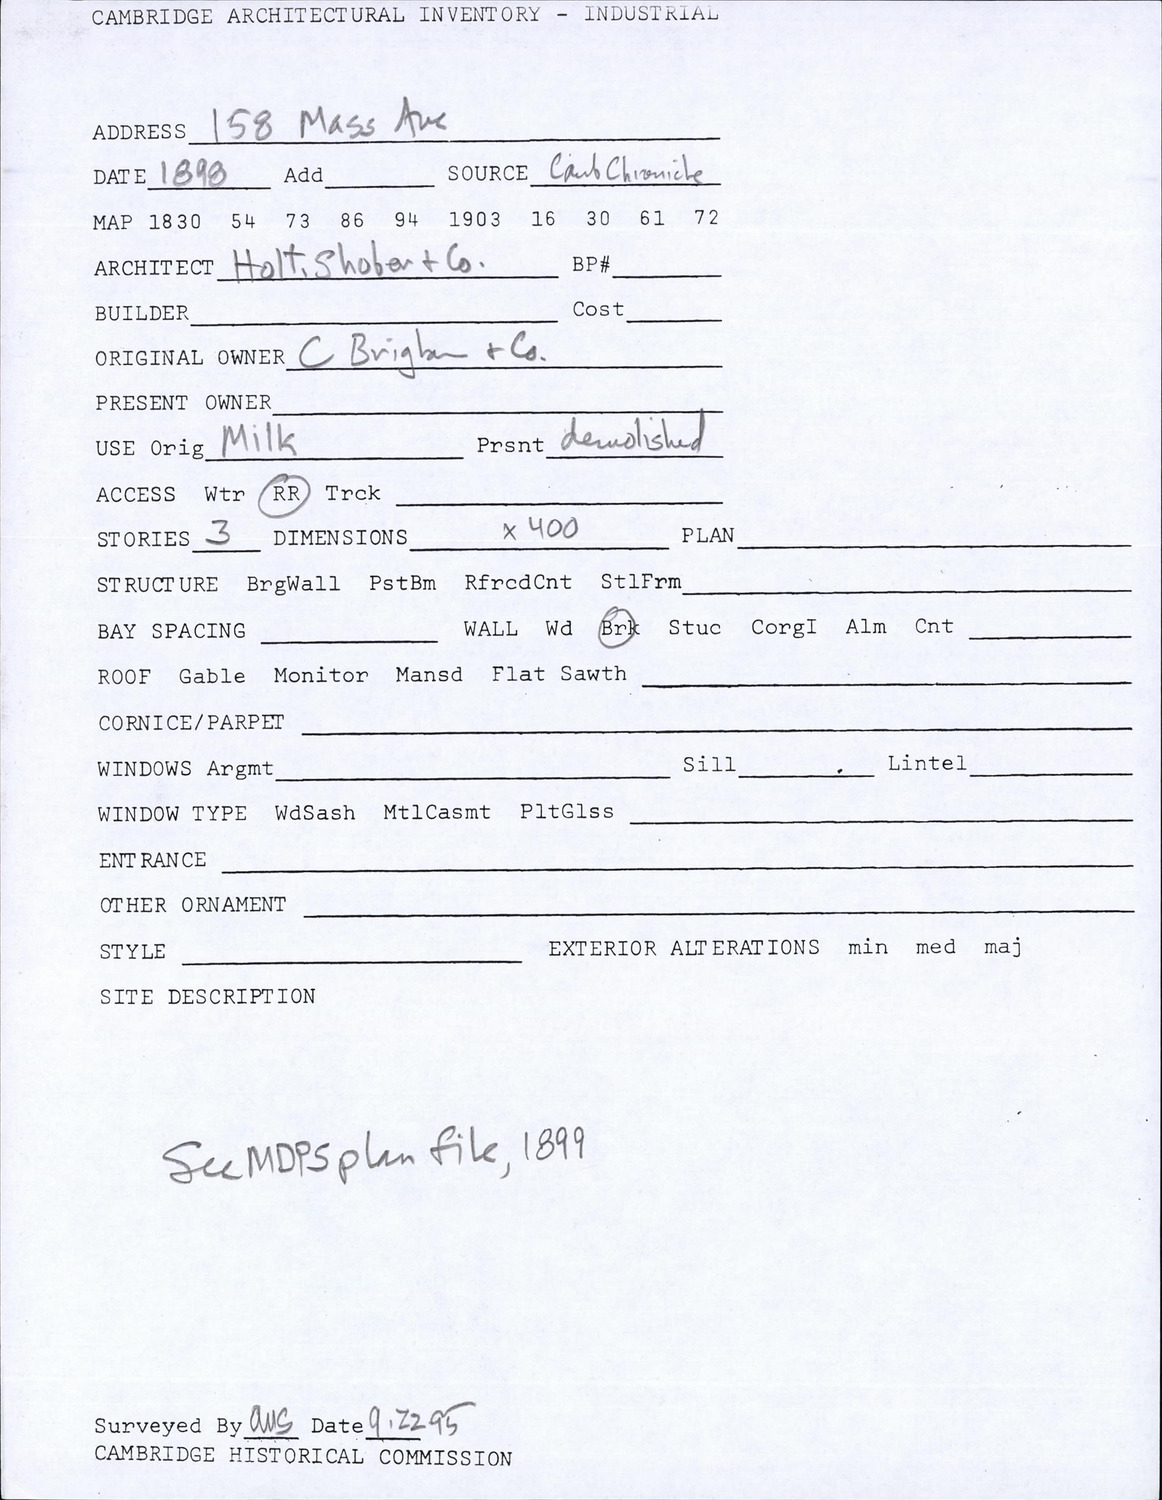 CAMBRIDGE ARCHITECTURAL INVENTORY - INDUSTRIAL
ADDRESS 158 Mass Ave
DATE 1898 Add SOURCE Camb Chronicle
MAP 1830 54 73 86 94 1903 16 30 61 72
ARCHITECT Holt, Shober + Co. BP#
BUILDER Cost
ORIGINAL OWNER C Brigham + Co.
PRESENT OWNER
USE Orig Milk Prsnt demolished
ACCESS Wtr RR Trck
STORIES 3 DIMENSIONS x 400 PLAN
STRUCTURE BrgWall PstBm RfrcdCnt StlFrm
BAY SPACING WALL Wd Brk Stuc CorgI Alm Cnt
ROOF Gable Monitor Mansd Flat Sawth
CORNICE/PARPET
WINDOWS Argmt Sill Lintel
WINDOW TYPE WdSash MtlCasmt PltGlss
ENTRANCE
OTHER ORNAMENT
STYLE EXTERIOR ALTERATIONS min med maj
SITE DESCRIPTION
See MDPS plan file, 1899
Surveyed By Date 9.22 95
CAMBRIDGE HISTORICAL COMMISSION